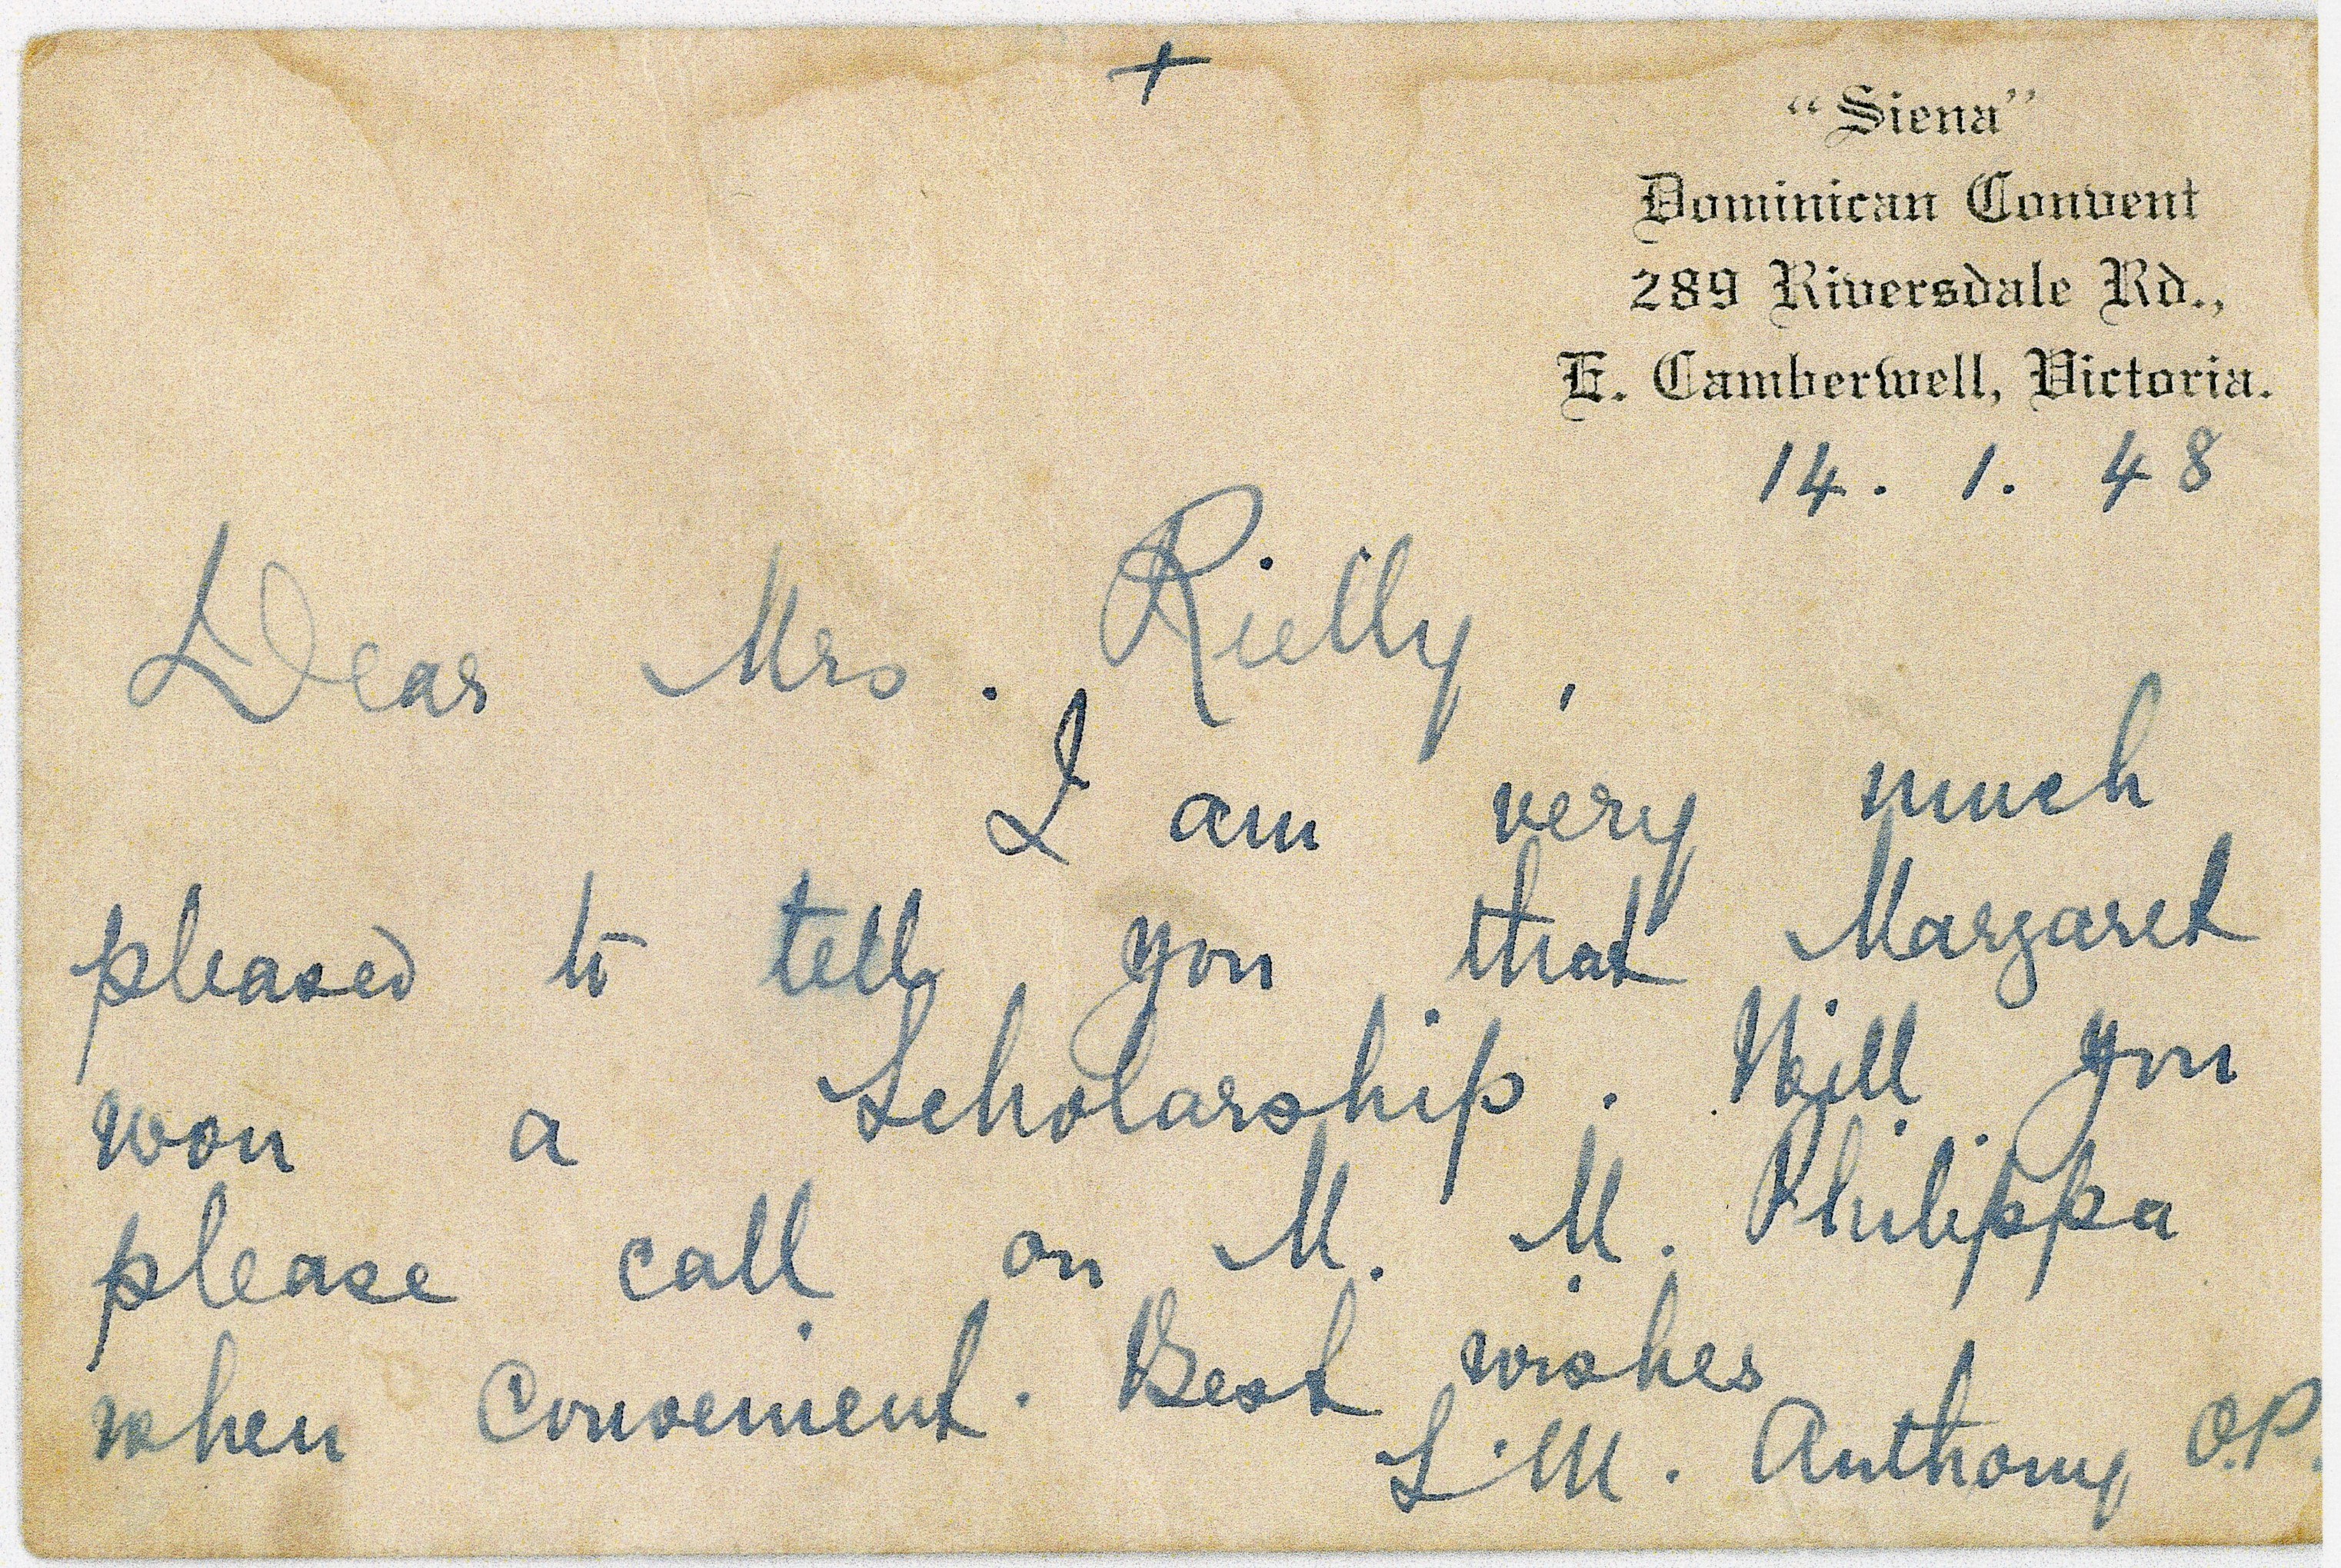 +
“Siena”
Dominican Convent
289 Riversdale Rd.,
E. Camberwell, Victoria.
14. 1. 48
Dear Mrs. Rielly,
I am very much
pleased to tell you that Margaret
won a Scholarship. Will you
please call on M. M. Philippa
when convenient. Best wishes
S.M. Anthony O.P.